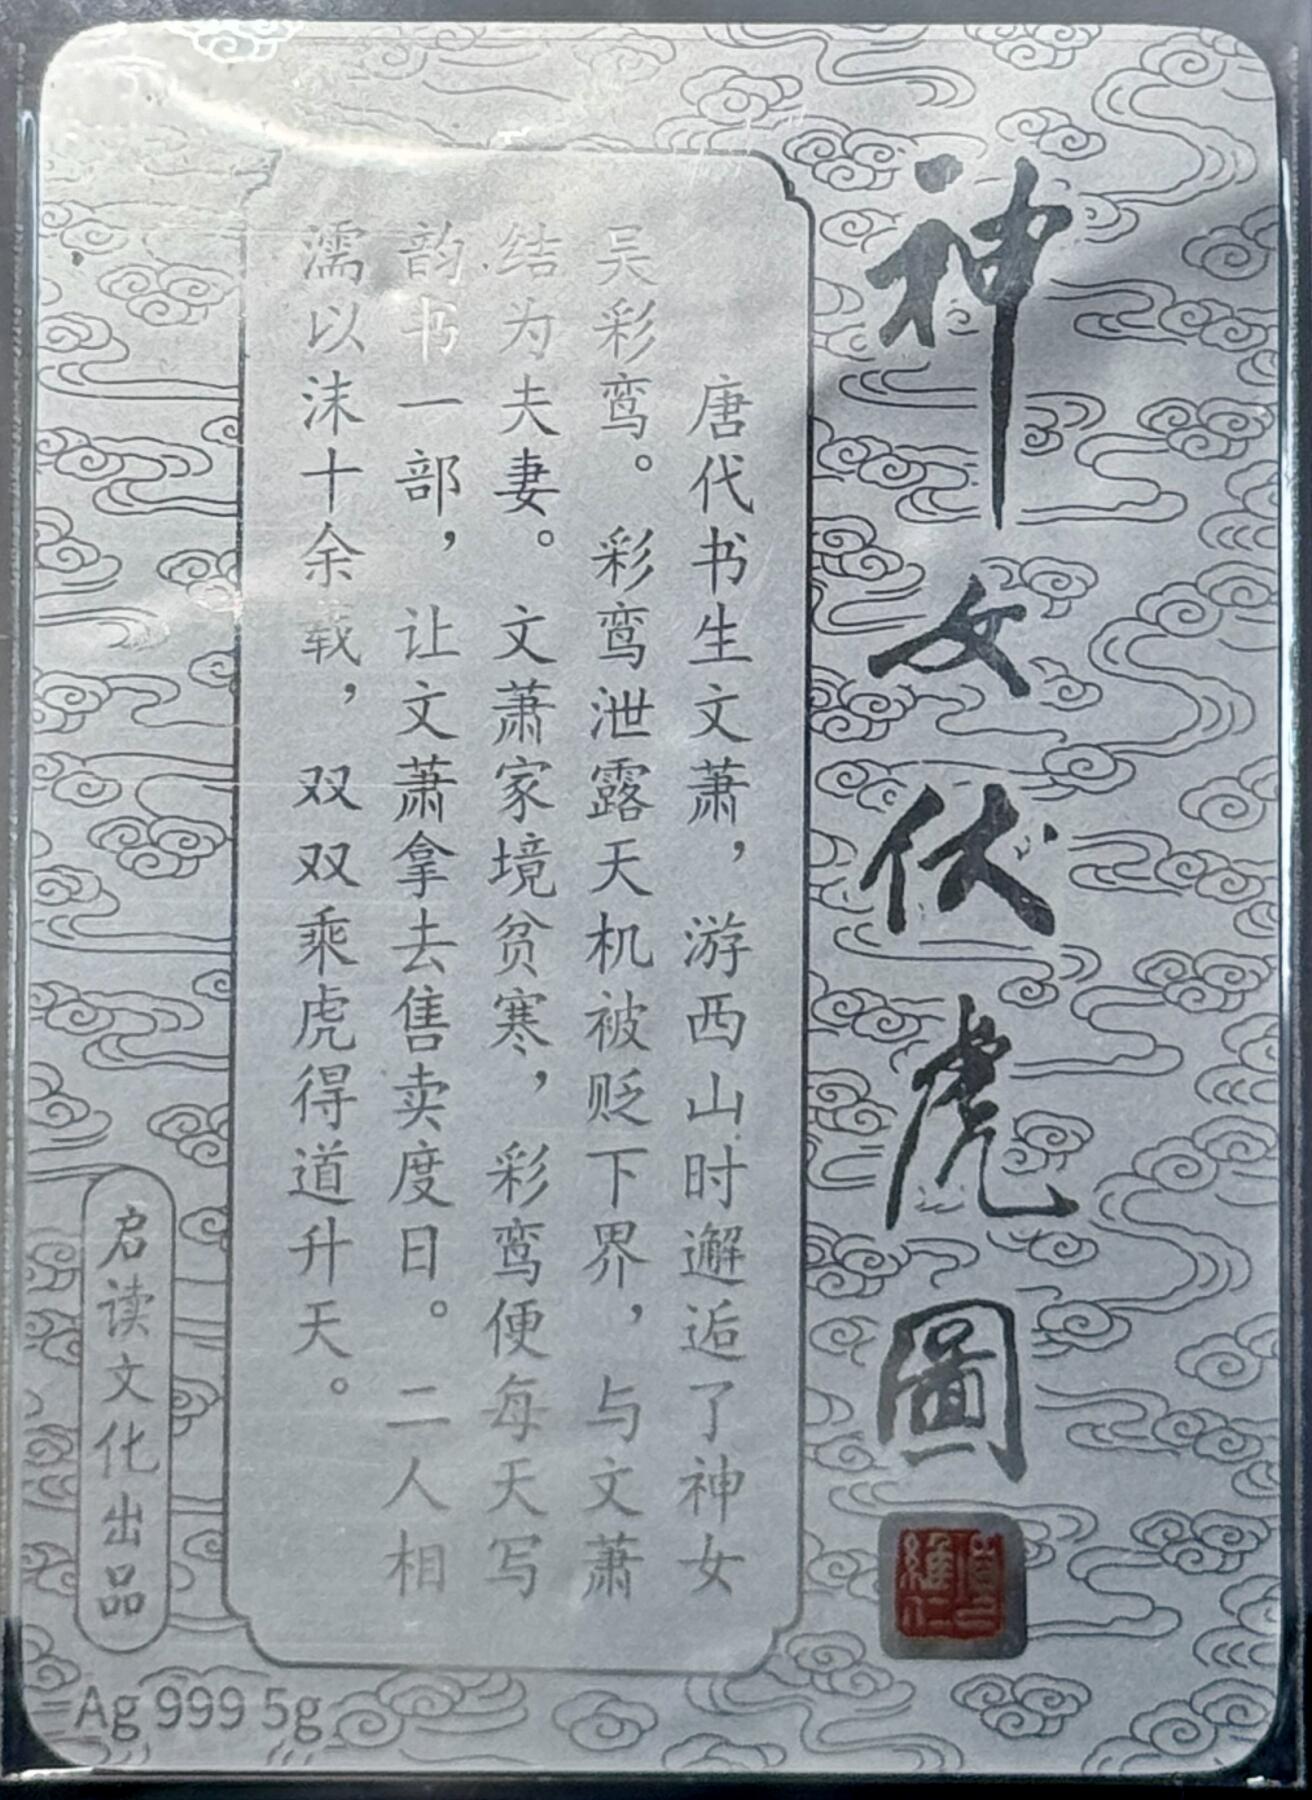 神女伏虎圖
唐代书生文萧，游西山时邂逅了神女
吴彩鸾。彩鸾泄露天机被贬下界，与文萧
结为夫妻。文萧家境贫寒，彩鸾便每天写
韵书一部，让文萧拿去售卖度日。二人相
濡以沫十余载，双双乘虎得道升天。
启读文化出品
Ag 999 5g